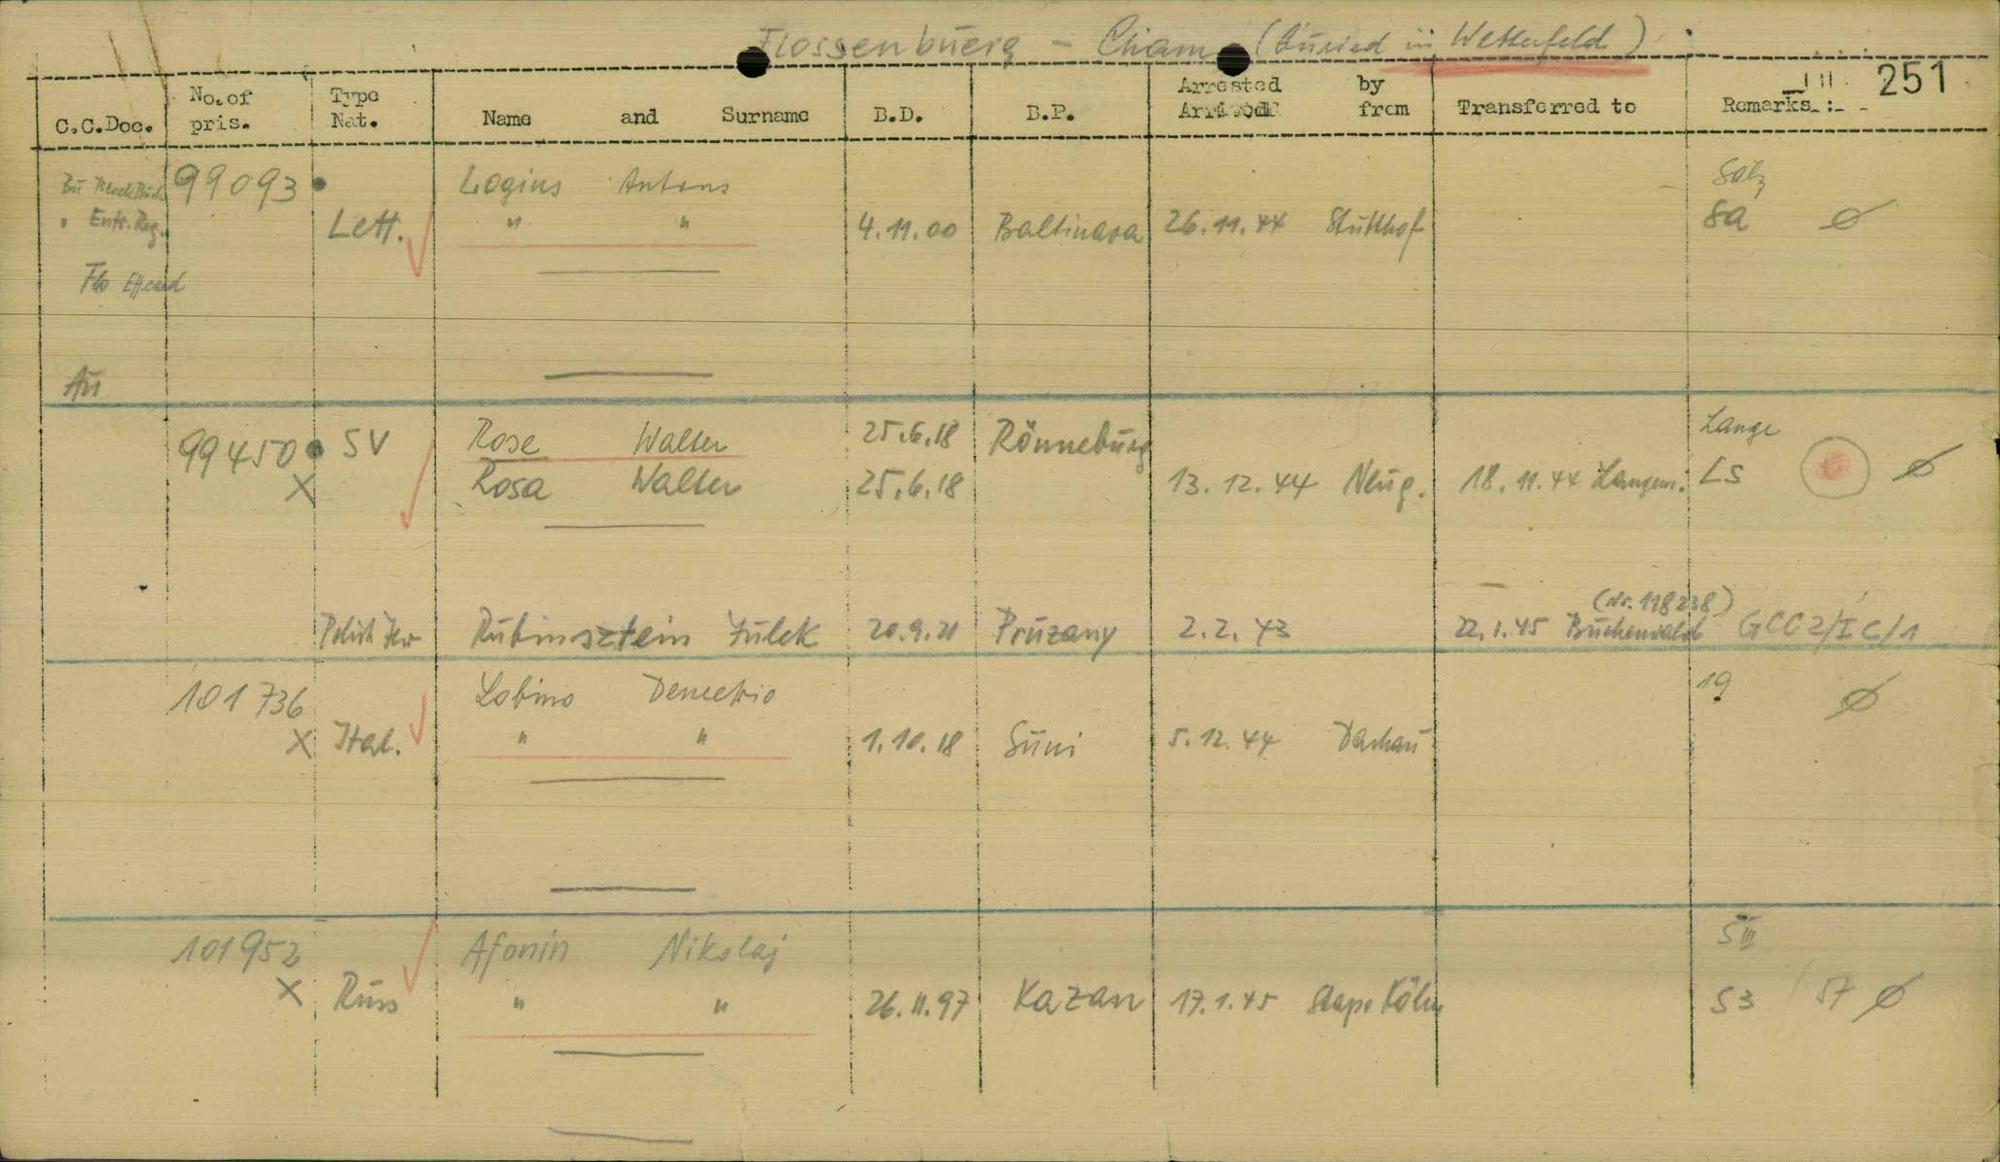 Flossenbuerg - Cham (buried in Wetterfeld)
III 251
C.C.Doc. No.of pris. Type Nat. Name and Surname B.D. B.P. Arrested by Arrived from Transferred to Remarks :-
Bu Block Buch 99093 Logins Antons Salz
" Entr. Reg. Lett. " " 4.11.00 Baltinava 26.11.44 Stutthof Sa ø
Flo Eff.card
Au
99450 SV Rose Walter 25.6.18 Rönneburg Lange
X Rosa Walter 25.6.18 13.12.44 Neug. 18.11.44 Langen. LS ø
(Nr. 118238)
Polish Jew Rubinsztein Julek 20.9.21 Pruzany 2.2.43 22.1.45 Buchenwald GCC2/IC/1
101736 Lobino Demetrio 19 ø
X Ital. " " 1.10.18 Suni 5.12.44 Dachau
101952 Afonin Nikolaj S III
X Russ " " 26.11.97 Kazan 17.1.45 Stapo Köln S3 57 ø